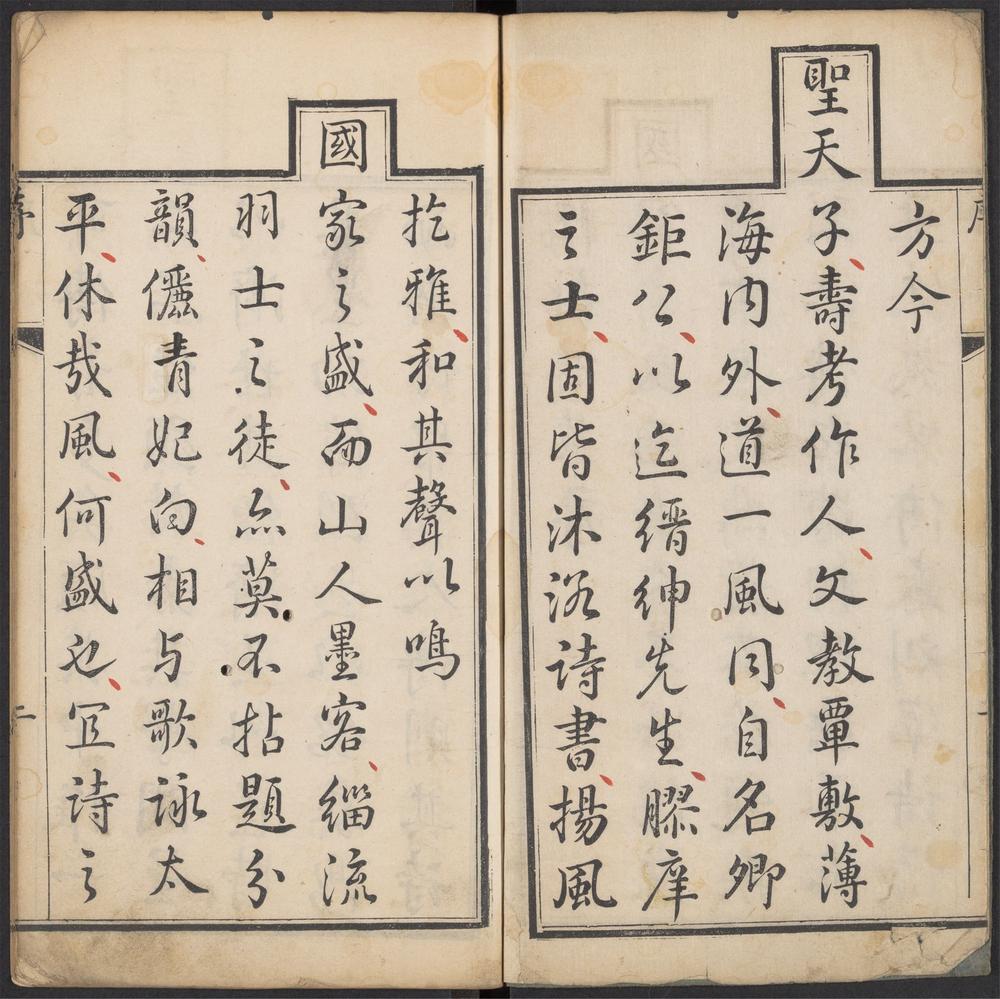 方今
聖天子壽考作人文教覃敷薄
海内外道一風同自名卿
鉅公以迄縉紳先生膠庠
之士固皆沐浴詩書揚風
扢雅和其聲以鳴
國家之盛而山人墨客緇流
羽士之徒亦莫不拈題分
韻儷青妃白相与歌詠太
平休哉風何盛也宜詩之
序
一
二